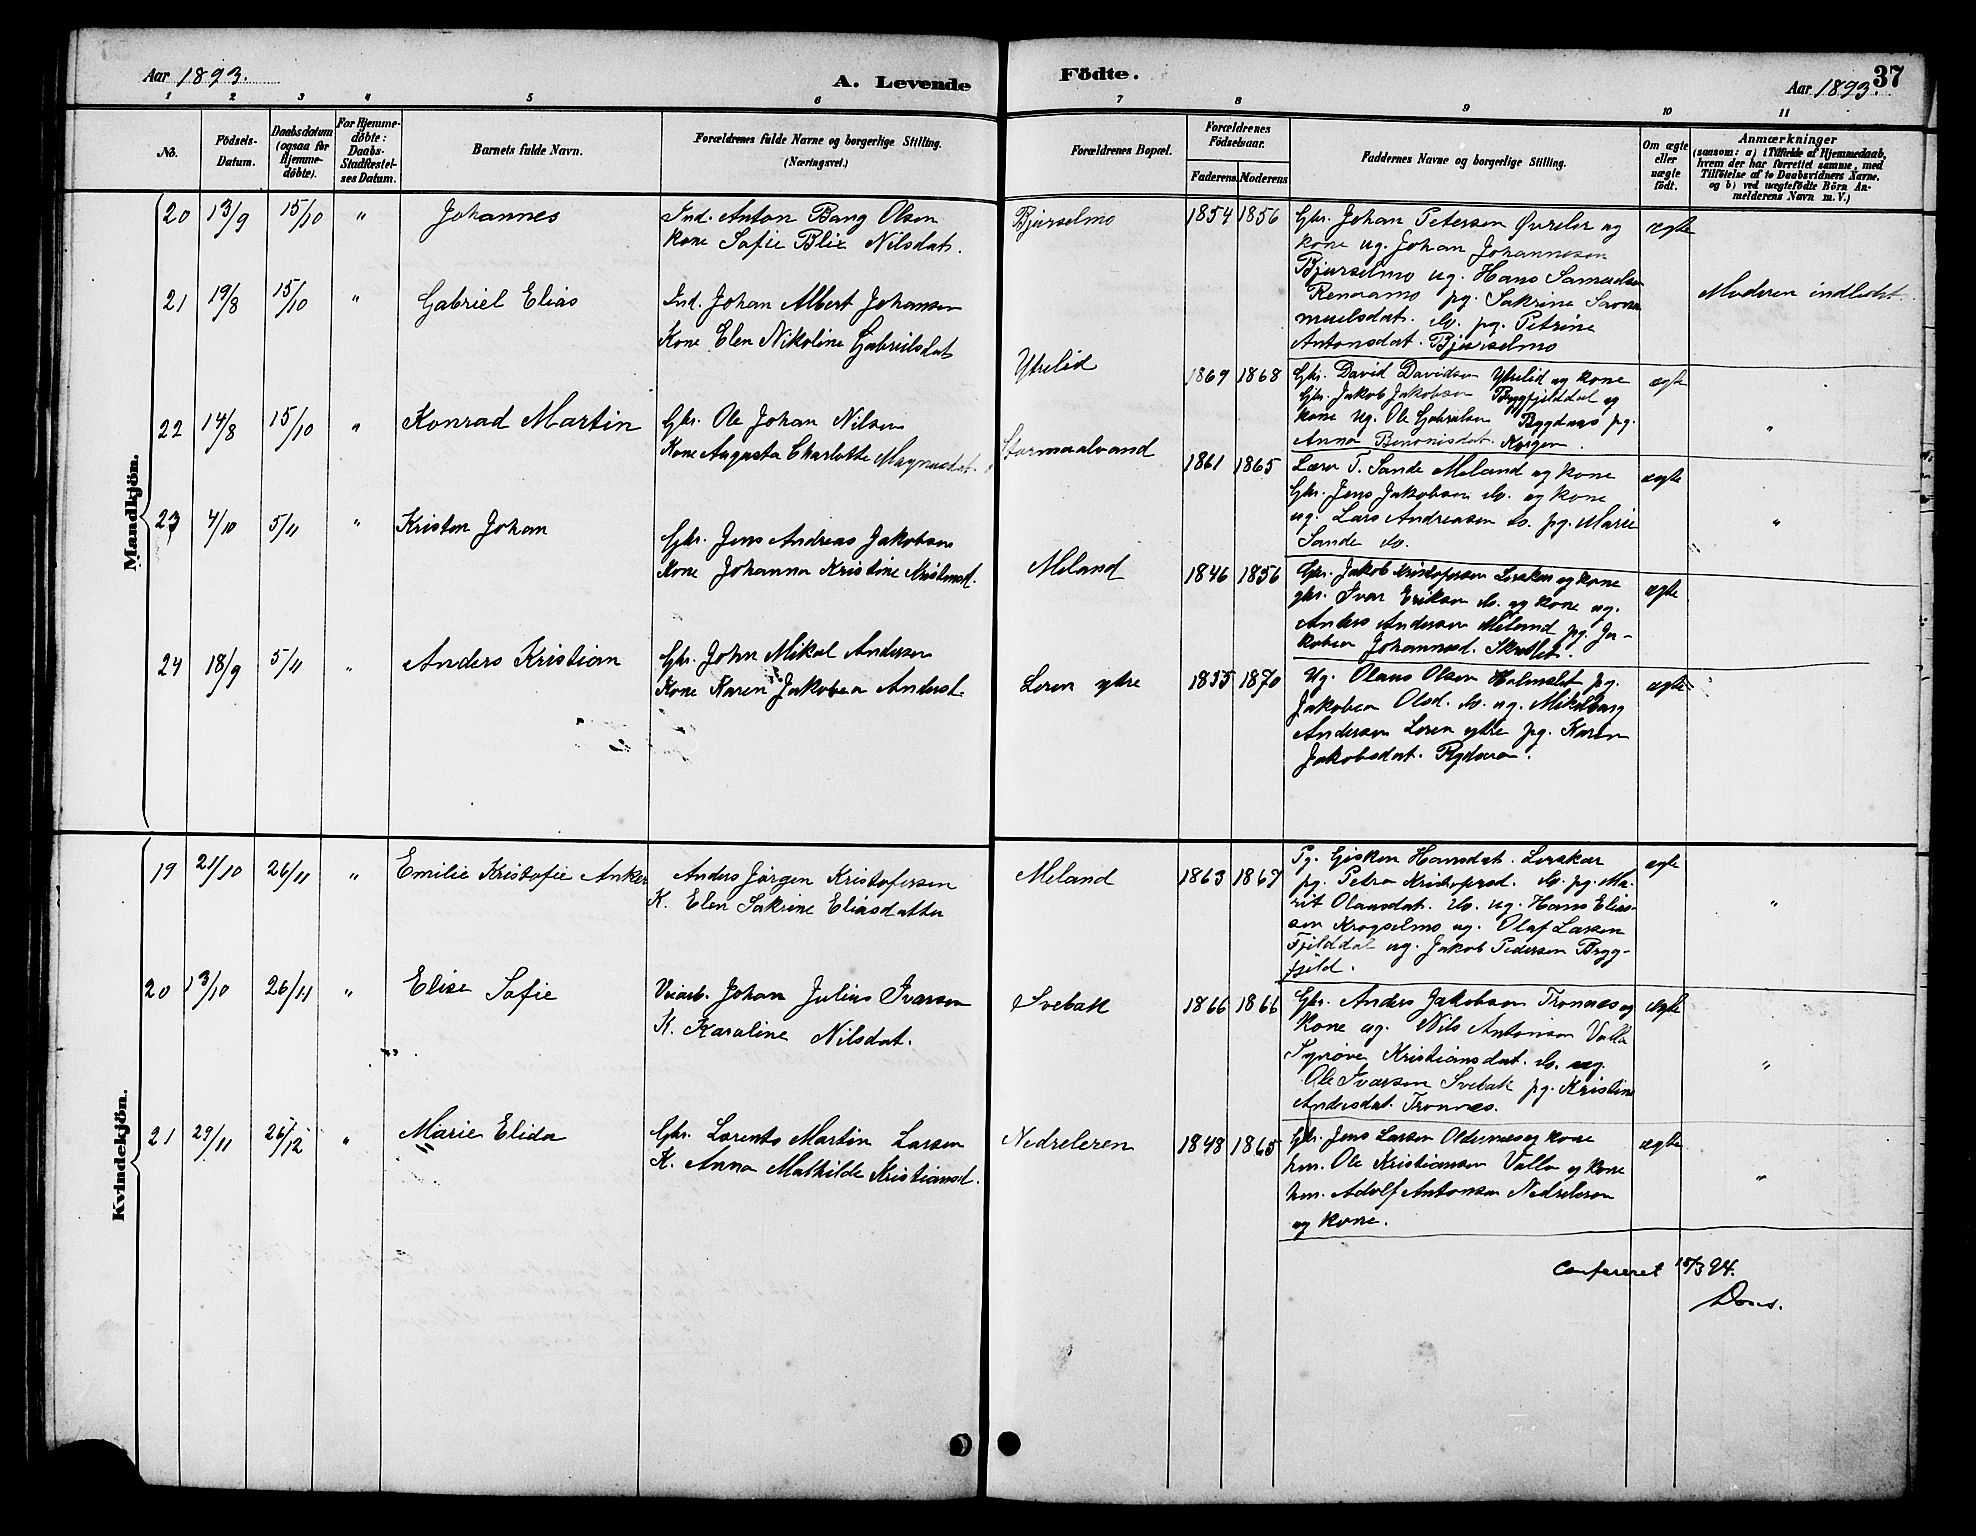 Aar 1893. A. Levende Födte. Aar 1893. 37
1 2 3 4 5 6 7 8 9 10 11
No. Födsels-Datum. Daabsdatum (ogsaa for Hjemme-döbte). For Hjemme-döbte: Daabs-Stadfæstel-ses Datum. Barnets fulde Navn. Forældrenes fulde Navne og borgerlige Stilling. (Næringsvei.) Forældrenes Bopæl. Forældrenes Födselsaar. Faderens. Moderens Faddernes Navne og borgerlige Stilling. Om ægte eller uægte födt. Anmærkninger (saasom: a) i Tilfælde af Hjemmedaab, hvem der har forrettet samme, med Tilföielse af to Daabsvidners Navne, og b) ved uægtefödte Börn An-melderens Navn m.V.)
Mandkjön.
20 13/9 15/10 " Johannes
Ind. Anton Bang Olsen
Kone Sofie Blix Nilsdat.
Bjurselmo 1854 1856
Gbr. Johan Petersen Øvreler og
kone ug. Johan Johannesen
Bjurselmo ug. Hans Samuelsen
Renaamo pg. Sakrine Sam
muelsdat. do. pg. Petrine
Antonsdat. Bjurselmo
ægte
21 19/8 15/10 " Gabriel Elias
Ind. Johan Albert Johansen
Kone Elen Nikoline Gabrielsdat
Ytrelid 1869 1868
Gbr. David Davidsen Ytrelid og kone
Gbr. Jakob Jakobsen Bryggfjelddal og
kone ug. Ole Gabrielsen Bygdaas pg.
Anna Benonisdat. Korgen.
ægte Moderen indledet
22 14/8 15/10 " Konrad Martin
Gbr. Ole Johan Nilsen
Kone Augusta Charlotte Magnusdat.
Stormaalvand 1861 1865
Lærer T. Sande Meland og kone
Gbr. Jens Jakobsen do. og kone
ug. Lars Andreasen do. pg. Marie
Sande do.
ægte "
23 4/10 5/11 " Kristen Johan
Gbr. Jens Andreas Jakobsen
Kone Johanna Kristine Kristensd.
Meland 1846 1856
Gbr. Jakob Kristofersen Lerskar og kone
gbr. Ivar Eriksen do. og kone ug.
Anders Andersen Meland pg. Ja-
kobea Johannesd.
ægte "
24 18/9 5/11 " Anders Kristian
Gbr. John Mikal Andersen
Kone Karen Jakobea Andersd.
Leren ytre 1855 1870
Ug. Olaus Olsen Holmslet pg.
Jakobea Olsd. do. ug. Mikal Berg
Andersen Leren ytre pg. Karen
Jakobsdat. Rydaaen.
ægte
Kvindekjön.
19 21/10 26/11 " Emilie Kristofie Anker
Anders Jørgen Kristofersen
K. Elen Sakrine Eliasdatter
Meland 1863 1869
Pg. Gisken Hansdat. Lerskar
pg. Petra Kristofersd. do. pg. Ma-
rit Olausdat. do. ug. Hans Elias-
sen Krogselmo ug. Olaf Larsen
Fjelddal ug. Jakob Pedersen Brygg-
fjeld.
ægte "
20 13/10 26/11 " Elise Sofie
Veiarb. Johan Julius Ivarsen
K. Karaline Nilsdat.
Svebak 1866 1866
Gbr. Anders Jakobsen Tronnæs og
kone ug. Nils Antonsen Valla
Synøve Kristiansdat. do. ug.
Ole Ivarsen Svebak pg. Kristine
Andersdat. Tronnæs.
ægte "
21 29/11 26/12 " Marie Elida
Gbr. Lorents Martin Larsen
K. Anna Mathilde Kristiansd.
Nedreleren 1848 1865
Gbr. Jens Larsen Oldernes og kone
hm. Ole Kristiansen Valla og kone
hm. Adolf Antonsen Nedreleren
og kone.
ægte "
Confereret 15/3 94.
Dons.